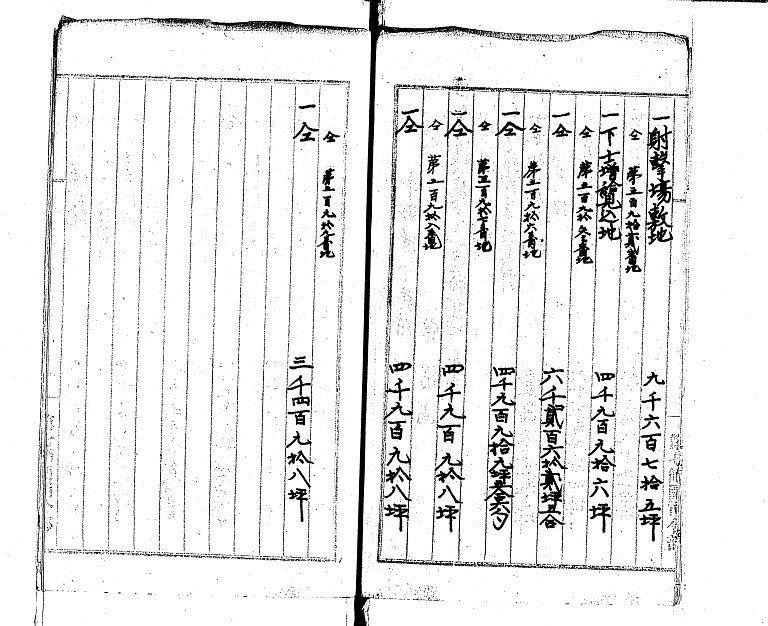 一射撃場敷地
九千六百七拾五坪
仝 第五百九拾貳番地
一下士増築込地
四千九百九拾六坪
仝
一仝
六千貳百六拾貳坪五合
仝 第五百九拾六番地
一仝
四千九百九拾九坪
仝 第五百九拾七番地
一仝
四千九百九拾八坪
仝 第五百九拾八番地
一仝
四千九百九拾八坪
仝 第五百九拾九番地
一仝
三千四百九拾八坪